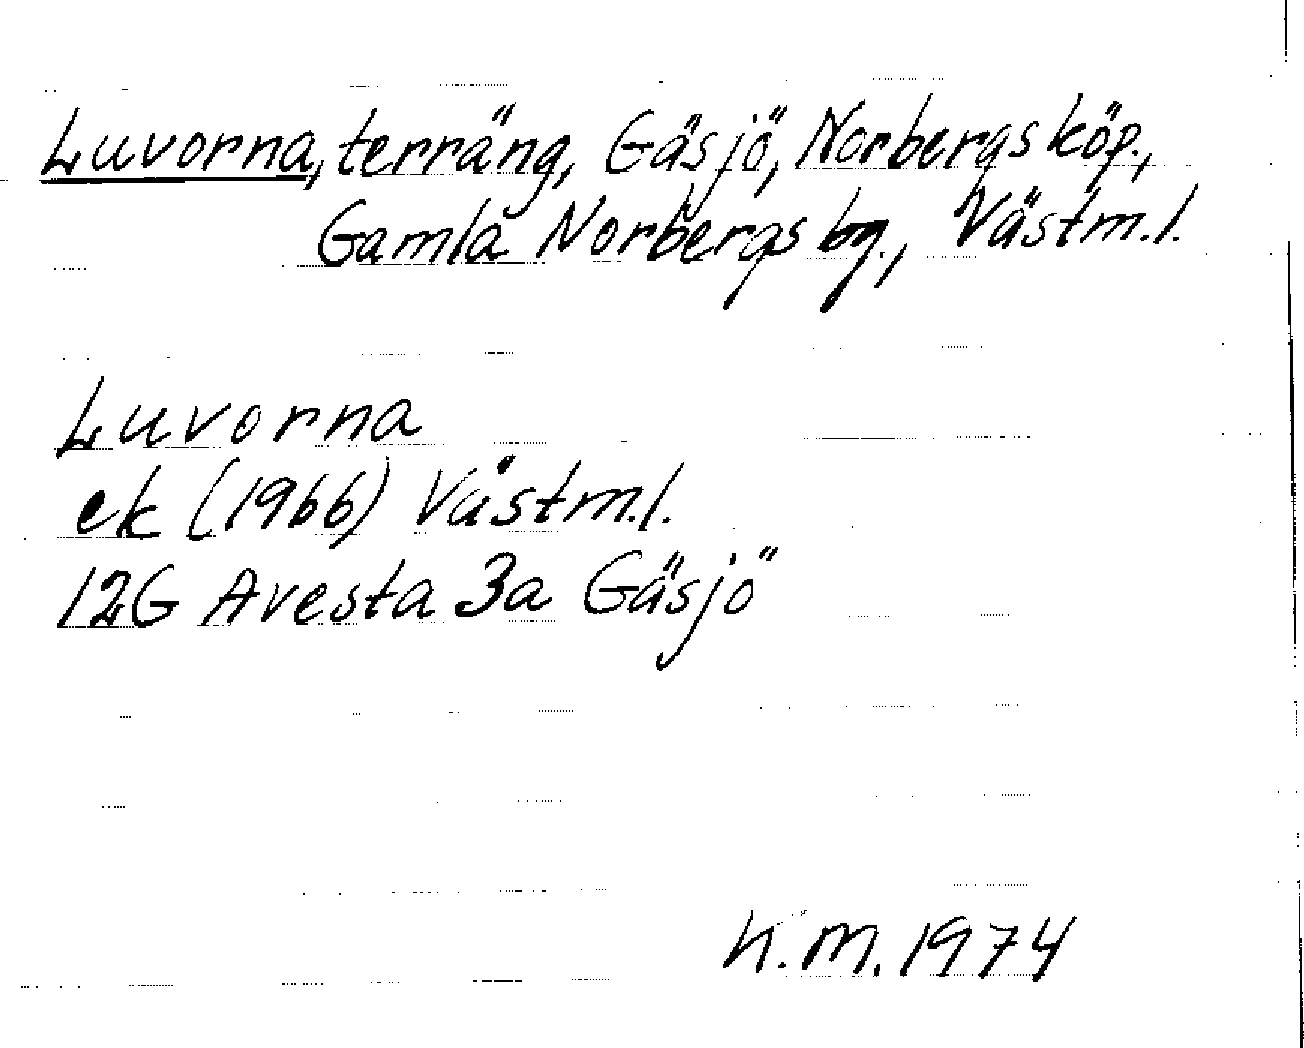 Luvorna, terräng, Gäsjö, Norbergs köp.,
Gamla Norbergs bg., Västm.l.
Luvorna
ek (1966) Västm.l.
12G Avesta 3a Gäsjö
K.M. 1974